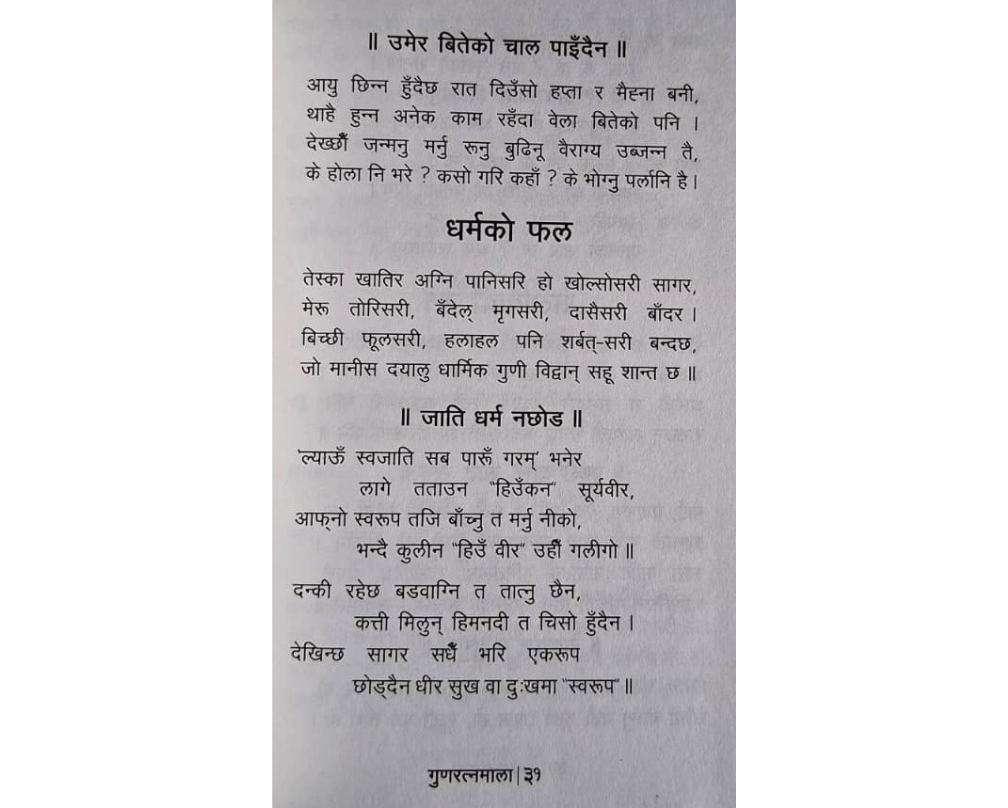 ॥ उमेर बितेको चाल पाइँदैन ॥
आयु छिन्न हुँदैछ रात दिउँसो हप्ता र मैह्ना बनी,
थाहै हुन्न अनेक काम रहँदा वेला बितेको पनि ।
देख्छौँ जन्मनु मर्नु रूनु बुढिनू वैराग्य उब्जन्न तै,
के होला नि भरे ? कसो गरि कहाँ ? के भोग्नु पर्लानि है ।
धर्मको फल
तेस्का खातिर अग्नि पानिसरि हो खोल्सोसरी सागर,
मेरू तोरिसरी, बँदेल् मृगसरी, दासैसरी बाँदर ।
बिच्छी फूलसरी, हलाहल पनि शर्बत्-सरी बन्दछ,
जो मानीस दयालु धार्मिक गुणी विद्वान् सहू शान्त छ ॥
॥ जाति धर्म नछोड ॥
'ल्याऊँ स्वजाति सब पारूँ गरम्' भनेर
लागे तताउन "हिउँकन" सूर्यवीर,
आफ्नो स्वरूप तजि बाँच्नु त मर्नु नीको,
भन्दै कुलीन "हिउँ वीर" उहीँ गलीगो ॥
दन्की रहेछ बडवाग्नि त तात्नु छैन,
कत्ती मिलुन् हिमनदी त चिसो हुँदैन ।
देखिन्छ सागर सधैँ भरि एकरूप
छोड्दैन धीर सुख वा दुःखमा "स्वरूप" ॥
गुणरत्नमाला|३१